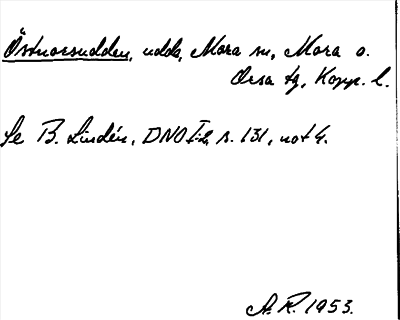 Östnorsudden, udde, Mora sn, Mora o.
Orsa tg, Kopp. l.
Se B. Lindén, DNO I:2, s. 131, not 4.
A. R. 1953.